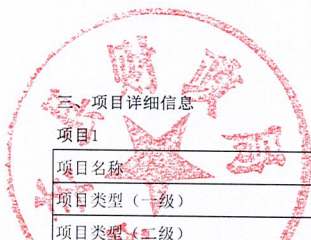 三、项目详细信息
项目1
项目名称
项目类型（一级）
项目类型（二级）